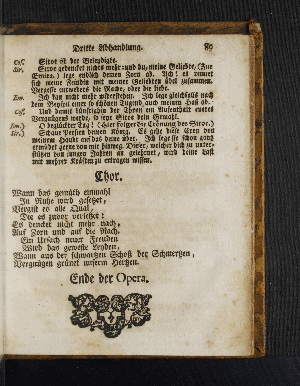 Dritte Abhandlung. 89
Cos. Siroe ist der Beleidigte.
Sir. Siroe gedencket nichts mehr: und du, meine Geliebte, (Zur
Emira.) lege endlich deinen Zorn ab. Ach! es reimet
sich meine Feindin mit meiner Geliebten übel zusammen.
Vergesse entweders die Rache, oder die Liebe.
Em. Ich kan nicht mehr widerstehen. Ich lege gleichfals nach
dem Beyspiel einer so schönen Tugend auch meinen Haß ab.
Cos. Und damit künfftighin der Thron ein Aufenthalt eures
Vergnügens werde, so seye Siroe dein Gemahl.
Em.) O beglückter Tag! (Hier folget die Crönung des Siroe.)
Sir.) Schaue Persien deinen König. Es gehe diese Cron von
meinem Haubt auf das deine über. Ich lege sie schon gantz
ermüdet gerne von mir hinweg. Dieser, welcher dich zu unter-
stützen von jungen Jahren an gelehrnet, wird deine Last
mit mehrer Kräfften zu ertragen wissen.
Chor.
Wann das gemüth einmahl
In Ruhe wird gesetzet,
Vergißt es alle Qual,
Die es zuvor verletzet:
Es dencket nicht mehr nach,
Auf Zorn und auf die Rach.
Ein Ursach neuer Freuden
Wird das geweste Leyden,
Wann aus der schwartzen Schoß der Schmertzen,
Vergnügen grünet unserm Hertzen.
Ende der Opera.